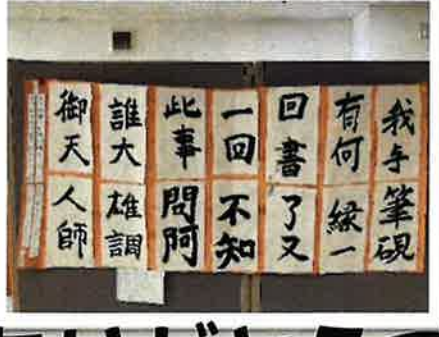 我与筆硯
有何縁一
回書了又
一回不知
此事問阿
誰大雄調
御天人師